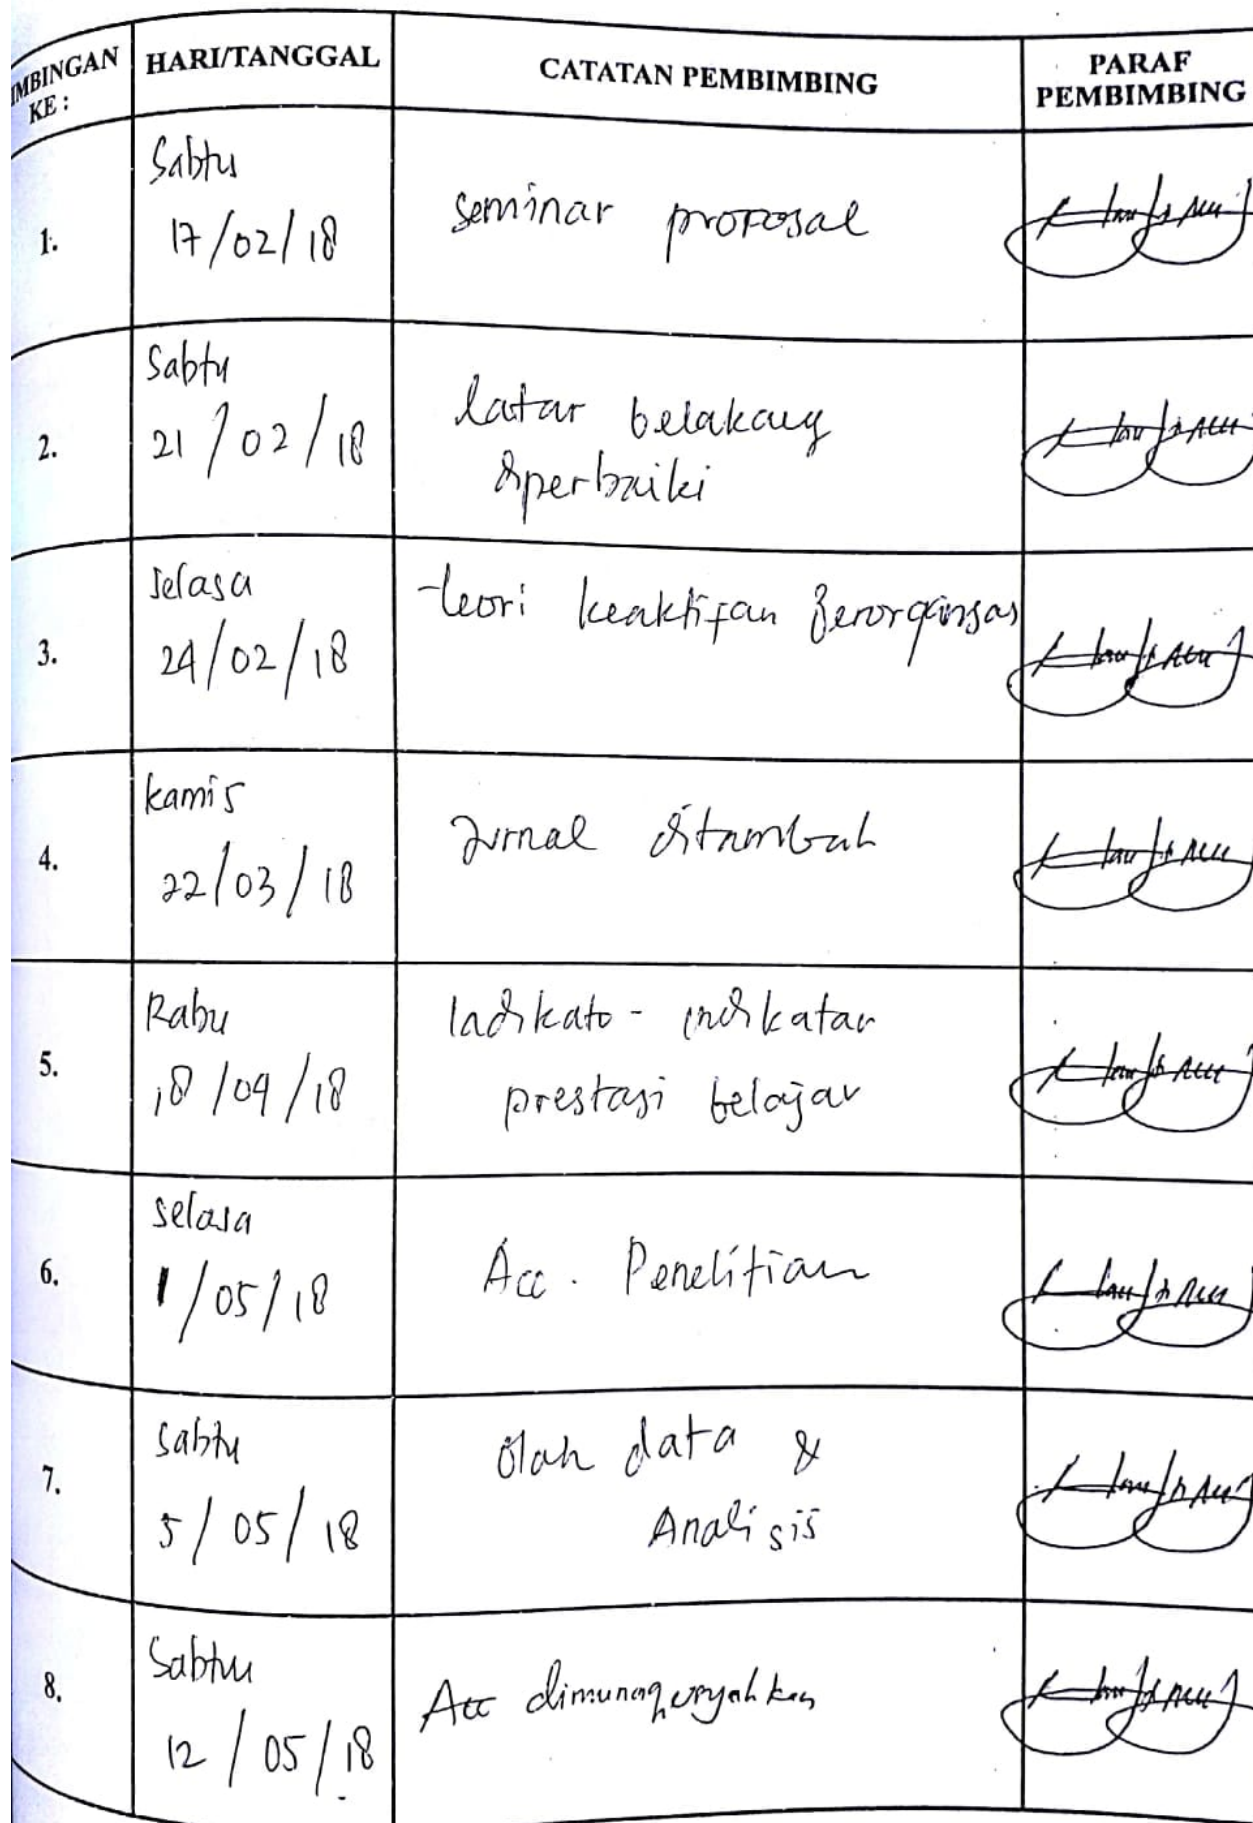 IMBINGAN KE :
HARI/TANGGAL
CATATAN PEMBIMBING
PARAF
PEMBIMBING
1.
Sabtu
17/02/18
seminar proposal
2.
Sabtu
21/02/18
latar belakang
diperbaiki
3.
Selasa
24/02/18
teori keaktifan Berorganisas
4.
kamis
22/03/18
Jurnal ditambah
5.
Rabu
18/04/18
Indikato - indikator
prestasi belajar
6.
selasa
1/05/18
Acc. Penelitian
7.
Sabtu
5/05/18
Olah data &
Analisis
8.
Sabtu
12/05/18
Acc dimunaqosyahkan